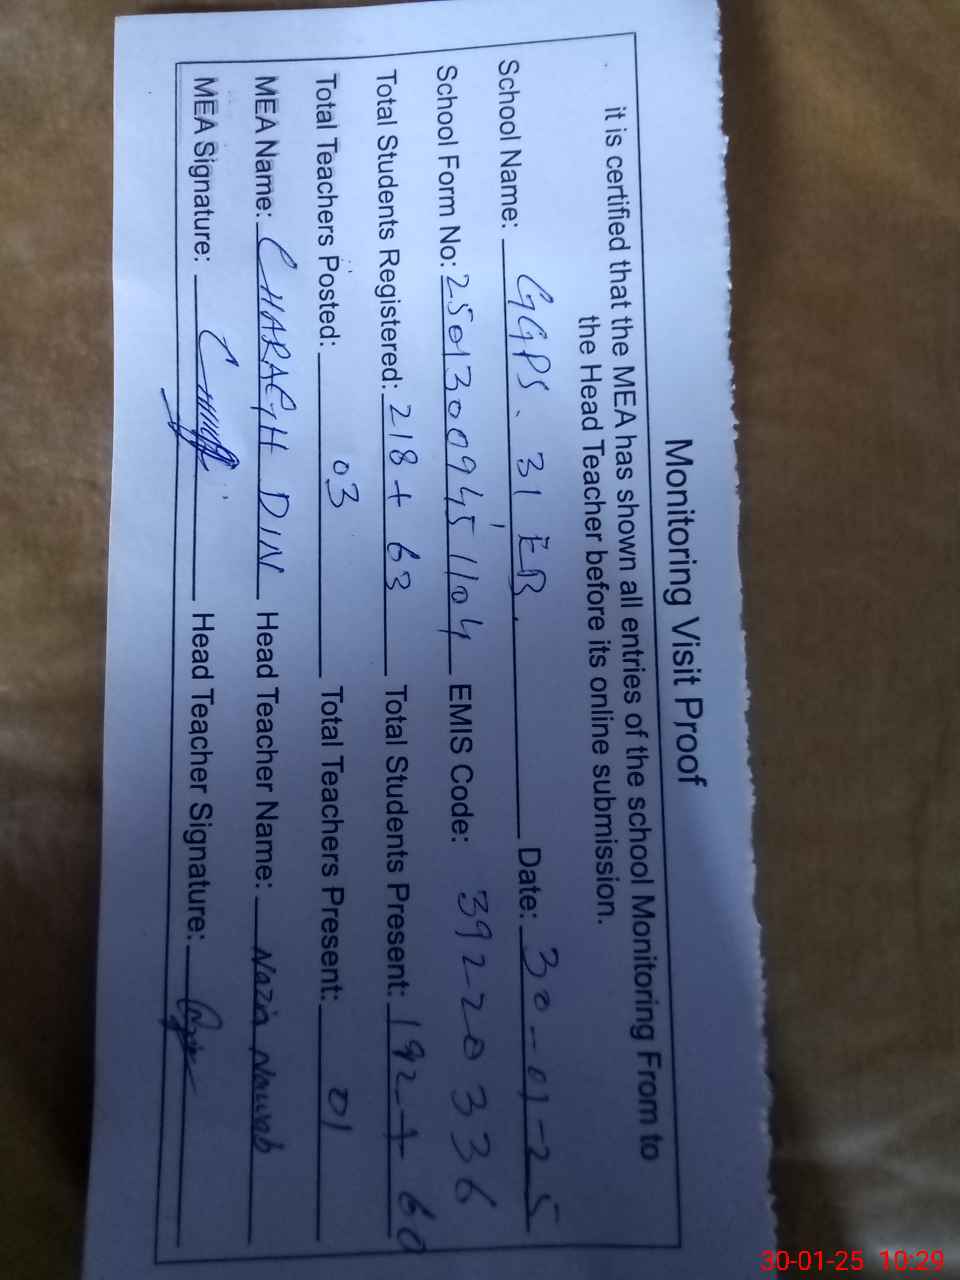 Monitoring Visit Proof
it is certified that the MEA has shown all entries of the school Monitoring From to
the Head Teacher before its online submission.
School Name: GGPS. 31 EB. Date: 30-01-25
School Form No: 25013009451104 EMIS Code: 39220336
Total Students Registered: 218 + 63 Total Students Present: 192 + 60
Total Teachers Posted: 03 Total Teachers Present: 01
MEA Name: CHARAGH DIN Head Teacher Name: Nazia Nawab
MEA Signature: Head Teacher Signature:
30-01-25 10:29